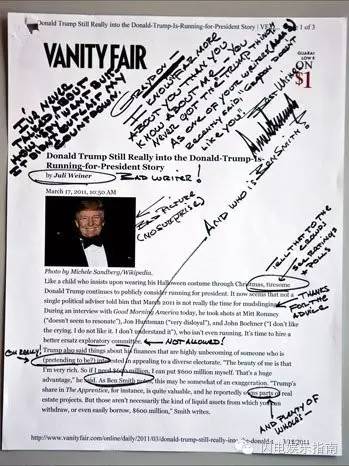 Donald Trump Still Really into the Donald-Trump-Is-Running-for-President Story |
1 of 3
VANITY FAIR
ON
$1
I'VE NEVER
GRAYDON—
I KNOW FAR MORE
ABOUT YOU THAN YOU
KNOW ABOUT ME. YOU
NEVER GOT THE "TRUMP THING"
AS ONE OF YOUR WRITERS
RECENTLY SAID, GRAYDON DOESN'T
LIKE YOU!
BEST WISHES
AND WHO IS BEN SMITH?
Donald Trump Still Really into the Donald-Trump-Is-
Running-for-President Story
by Juli Weiner
BAD WRITER!
March 17, 2011, 10:50 AM
BAD PICTURE
(NO SURPRISE)
TELL THAT TO THE
Photo by Michele Sandberg/Wikipedia.
Like a child who insists upon wearing his Halloween costume through Christmas, tiresome
Donald Trump continues to publicly consider running for president. It now seems that not a
single political advisor told him that March 2011 is not really the time for mudslinging.
THANKS
FOR THE
ADVICE
During an interview with Good Morning America today, he took shots at Mitt Romney
("doesn't seem to resonate"), Jon Huntsman ("very disloyal"), and John Boehner ("I don't like
the crying. I do not like it. I don't understand it"), who isn't even running. It's time to hire a
better ersatz exploratory committee.
NOT ALLOWED!
OH REALLY!
Trump also said things about his finances that are highly unbecoming of someone who is
(pretending to be?) interested in appealing to a diverse electorate. "The beauty of me is that
I'm very rich. So if I need $600 million, I can put $600 million myself. That's a huge
advantage," he said. As Ben Smith notes, this may be somewhat of an exaggeration. "Trump's
share in The Apprentice, for instance, is quite valuable, and he reportedly owns parts of real
estate projects. But those aren't necessarily the kind of liquid assets from which you can
withdraw, or even easily borrow, $600 million," Smith writes.
AND PLENTY OF
WHOLES—
http://www.vanityfair.com/online/daily/2011/03/donald-trump-still-really-into-the-donald-t
2011
闪电娱乐指南